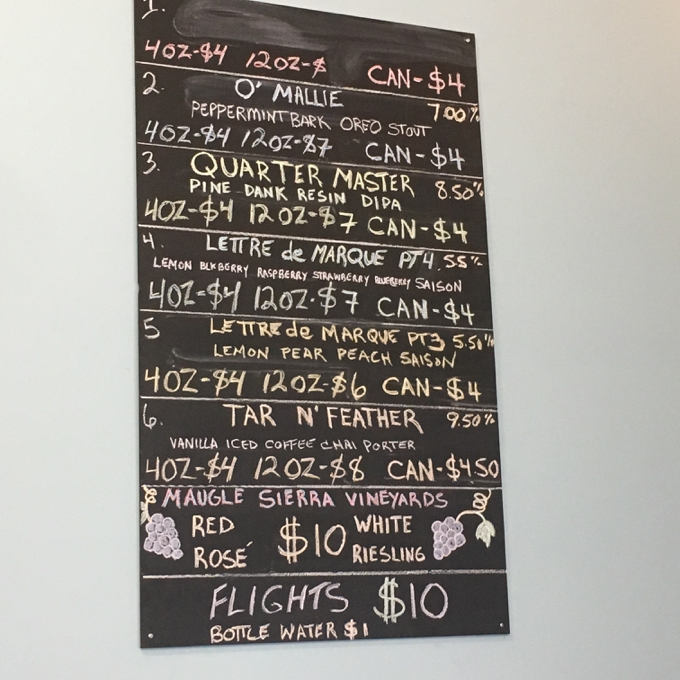 1.
4OZ-$4 12OZ-$ CAN-$4
2. O' MALLIE 7.00%
PEPPERMINT BARK OREO STOUT
4OZ-$4 12OZ-$7 CAN-$4
3. QUARTER MASTER 8.50%
PINE DANK RESIN DIPA
4OZ-$4 12OZ-$7 CAN-$4
4. LETTRE de MARQUE PT4 .55%
LEMON BLKBERRY RASPBERRY STRAWBERRY BLUEBERRY SAISON
4OZ-$4 12OZ-$7 CAN-$4
5 LETTRE de MARQUE PT3 5.50%
LEMON PEAR PEACH SAISON
4OZ-$4 12OZ-$6 CAN-$4
6. TAR N' FEATHER 9.50%
VANILLA ICED COFFEE CHAI PORTER
4OZ-$4 12OZ-$8 CAN-$4.50
MAUGLE SIERRA VINEYARDS
RED $10 WHITE
ROSÉ RIESLING
FLIGHTS $10
BOTTLE WATER $1